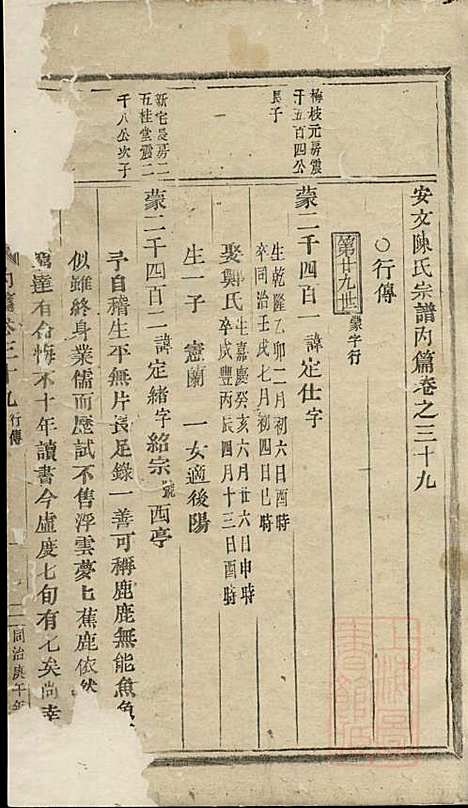 安文陳氏宗譜內篇卷之三十九
○行傳
第廿九世 蒙字行
梅枝元房震
千五百四公
長子
蒙二千四百一諱定仕字
生乾隆乙卯二月初六日酉時
卒同治壬戌七月初四日巳時
娶鄭氏生嘉慶癸亥六月廿六日申時
卒咸豐丙辰四月十三日酉時
生一子 憲蘭 一女適後陽
新宅長房二
五桂堂震二
千八公次子
蒙二千四百二諱定緒字紹宗號西亭
予自稽生平無片長足錄一善可稱鹿鹿無能魚魚
似雖終身業儒而歷試不售浮雲夢上蕉鹿依然
窮達有命悔不十年讀書今虛度七旬有七矣尚幸
內篇卷三十九 行傳 二 同治庚午年